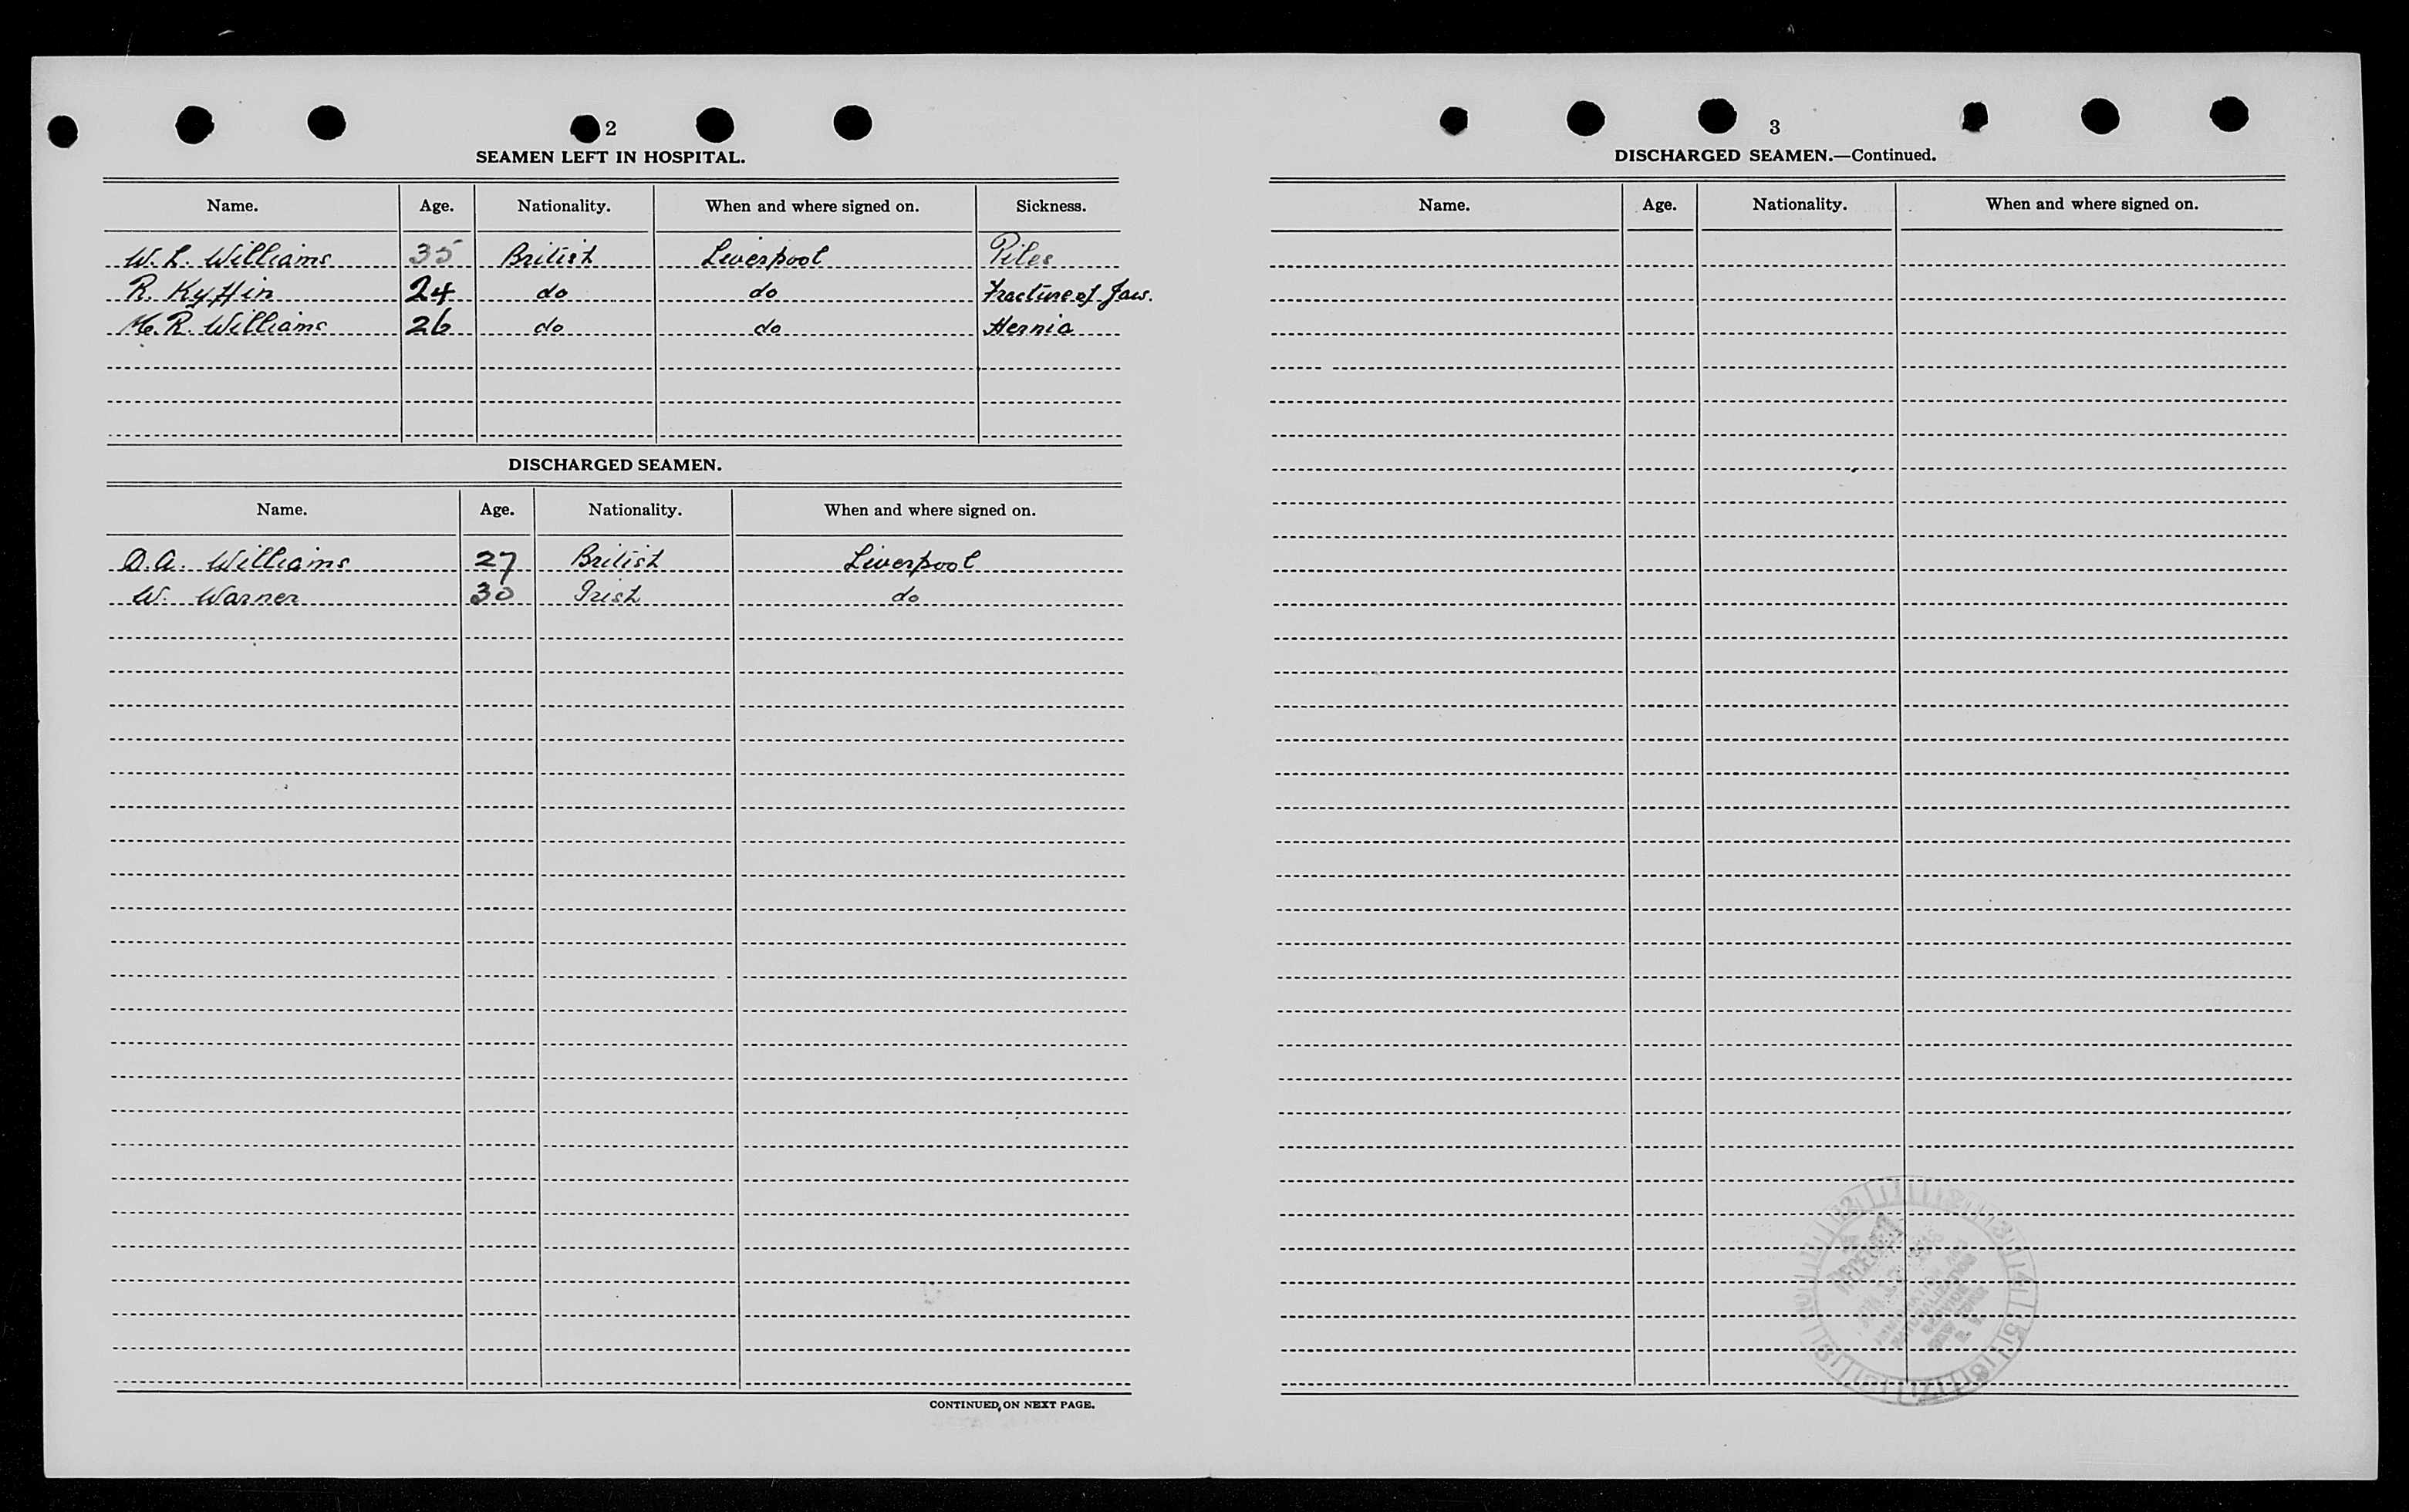 2
SEAMEN LEFT IN HOSPITAL.
Name. Age. Nationality. When and where signed on. Sickness.
W. L. Williams 35 British Liverpool Piles
R. Kyffin 24 do do Fracture of Jaw.
R. Williams 26 do do Hernia
DISCHARGED SEAMEN.
Name. Age. Nationality. When and where signed on.
O. A. Williams 27 British Liverpool
W. Warner 30 Irish do
CONTINUED, ON NEXT PAGE.
3
DISCHARGED SEAMEN.—Continued.
Name. Age. Nationality. When and where signed on.
RECEIVED